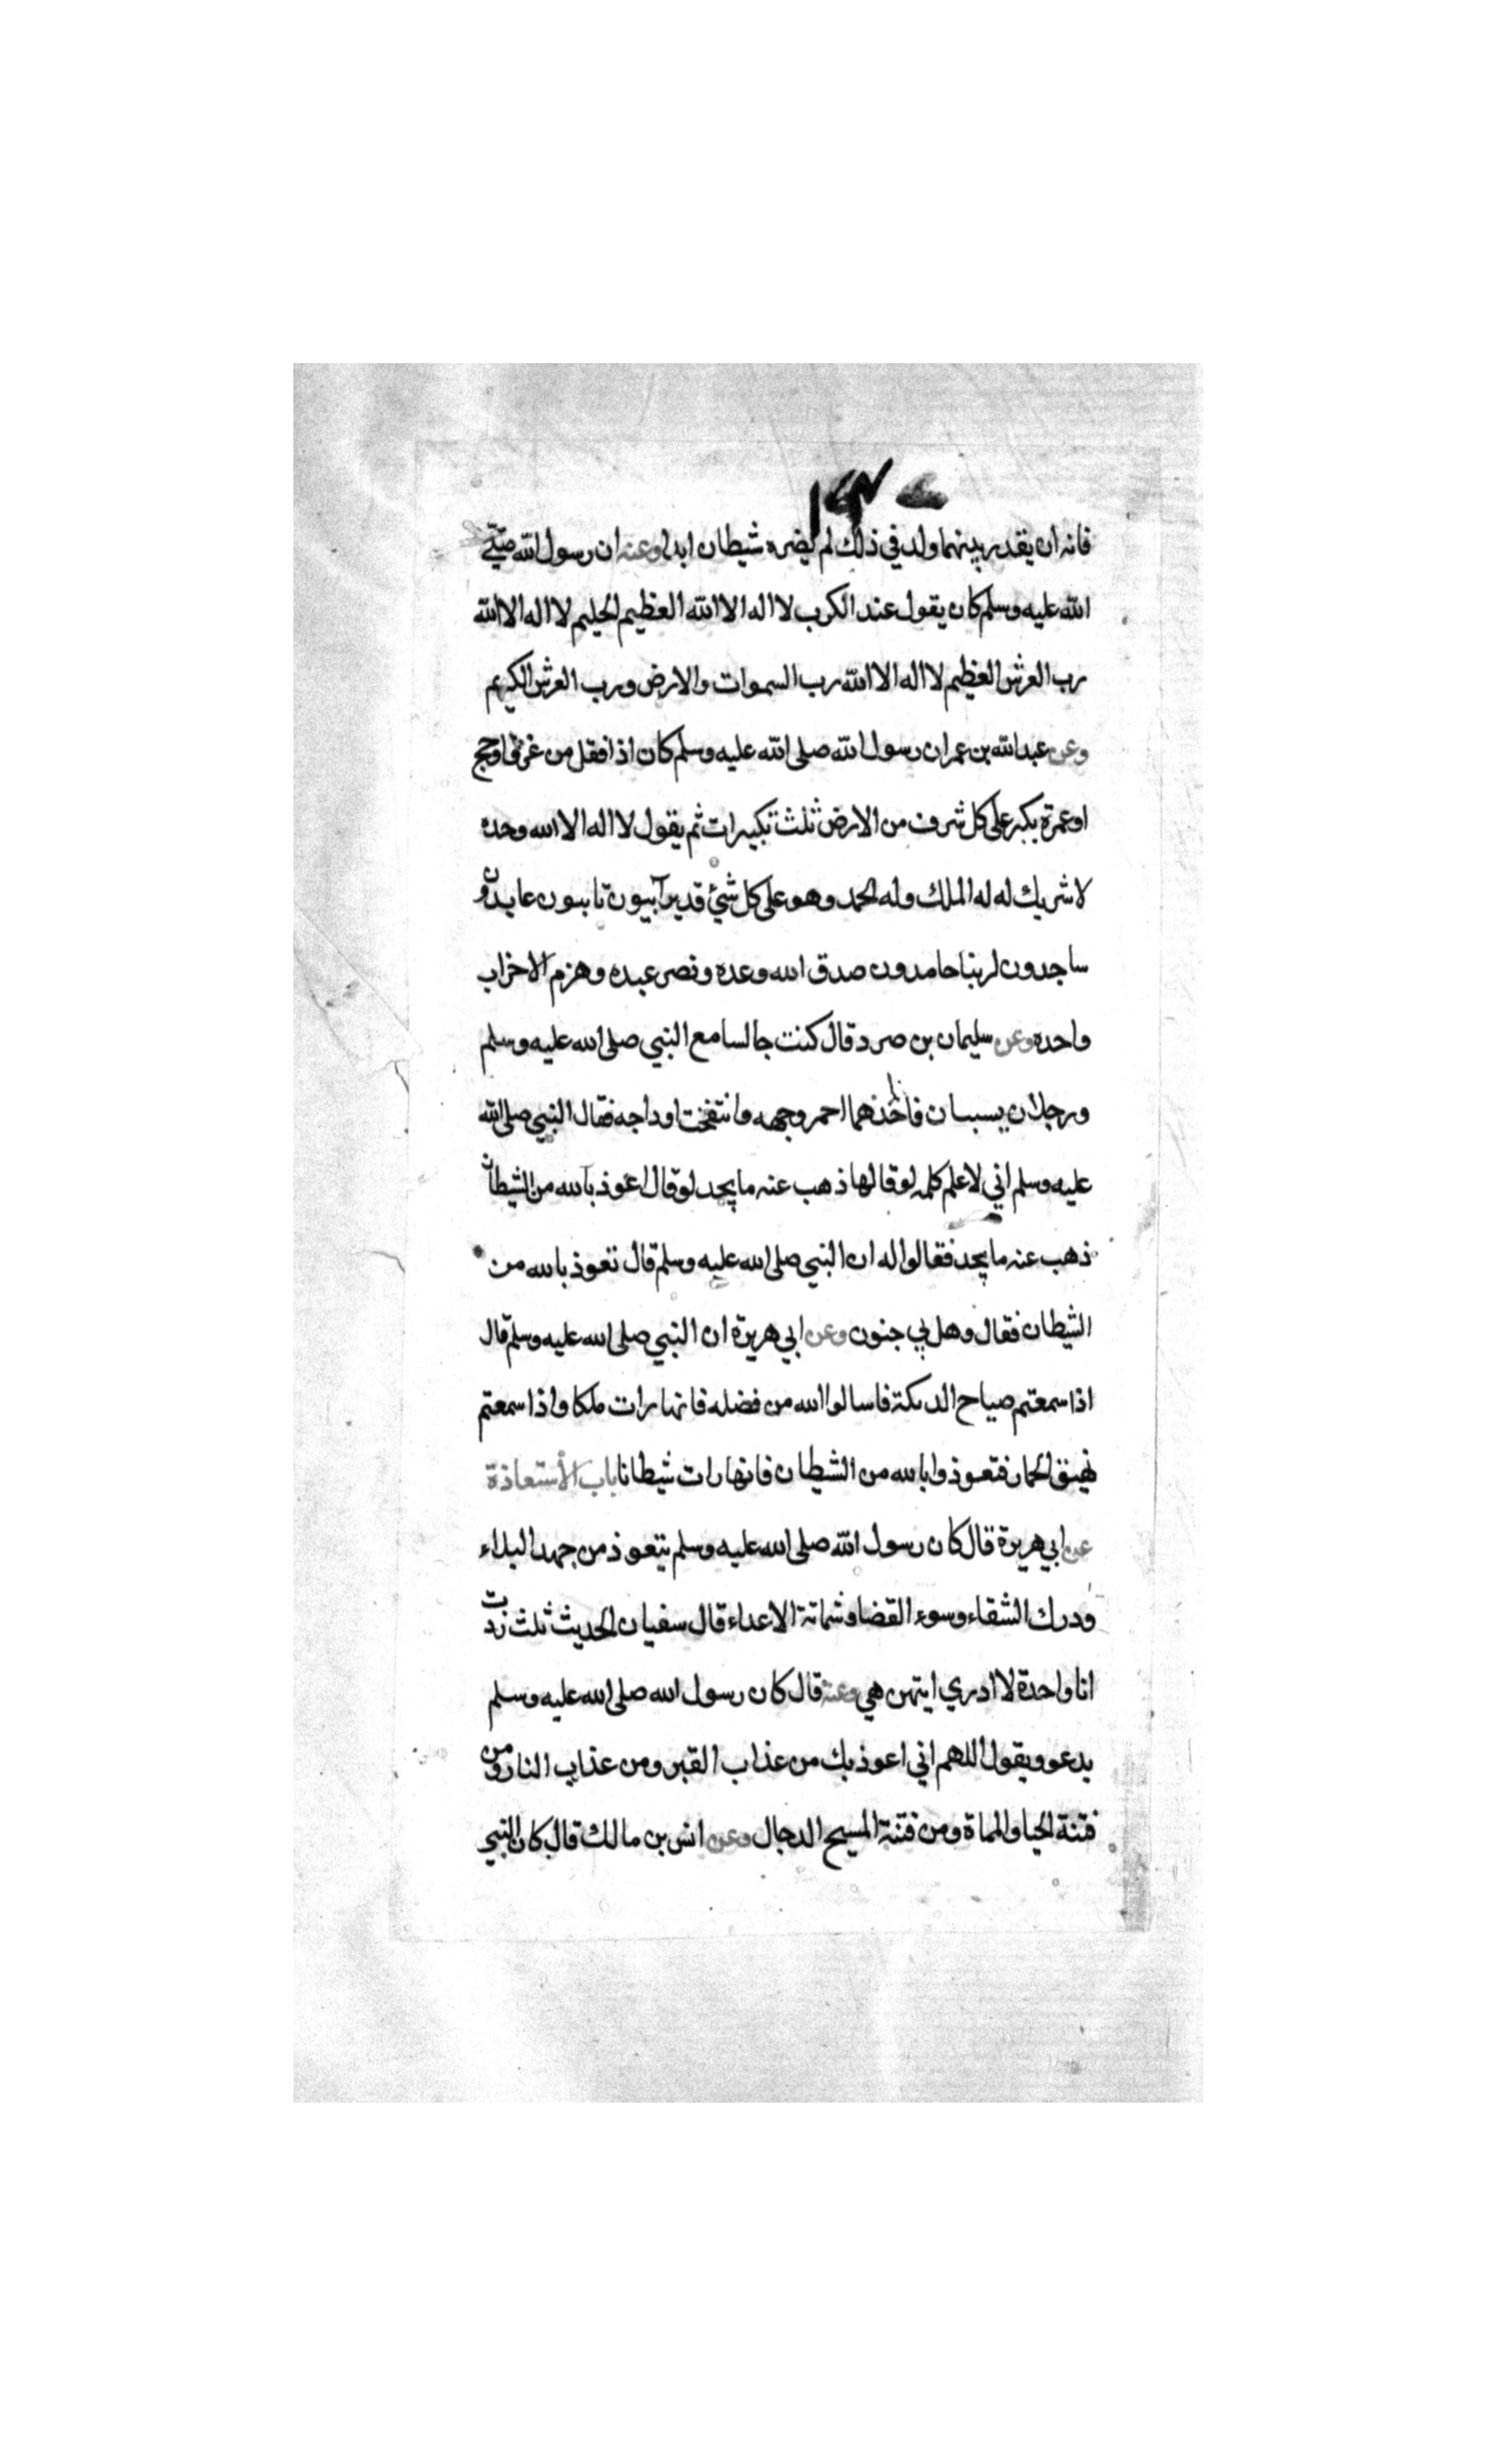 فانه ان يقدر بينهما ولد في ذلك لم يضره شيطان ابدا وعنه ان رسول الله صلى
الله عليه وسلم كان يقول عند الكرب لا اله الا الله العظيم الحليم لا اله الا الله
رب العرش العظيم لا اله الا الله رب السموات والارض ورب العرش الكريم
وعن عبد الله بن عمر ان رسول الله صلى الله عليه وسلم كان اذا قفل من غزو او حج
او عمرة يكبر على كل شرف من الارض ثلث تكبيرات ثم يقول لا اله الا الله وحده
لا شريك له له الملك وله الحمد وهو على كل شئ قدير آيبون تايبون عابدون
ساجدون لربنا حامدون صدق الله وعده ونصر عبده وهزم الاحزاب
واحده وعن سليمان بن صرد قال كنت جالسا مع النبي صلى الله عليه وسلم
ورجلان يستبان فاحدهما احمر وجهه وانتفخت اوداجه فقال النبي صلى الله
عليه وسلم اني لاعلم كلمه لو قالها ذهب عنه ما يجد لو قال اعوذ بالله من الشيطان
ذهب عنه ما يجد فقالوا له ان النبي صلى الله عليه وسلم قال تعوذ بالله من
الشيطان فقال وهل بي جنون وعن ابي هريرة ان النبي صلى الله عليه وسلم قال
اذا سمعتم صياح الديكة فاسالوا الله من فضله فانها رات ملكا واذا سمعتم
نهيق الحمار فتعوذوا بالله من الشيطان فانها رات شيطانا باب الاستعاذة
عن ابي هريرة قال كان رسول الله صلى الله عليه وسلم يتعوذ من جهد البلاء
ودرك الشقاء وسوء القضا وشماتة الاعداء قال سفيان الحديث ثلث زدت
انا واحدة لا ادري ايتهن هي وعنه قال كان رسول الله صلى الله عليه وسلم
يدعو ويقول اللهم اني اعوذ بك من عذاب القبر ومن عذاب النار ومن
فتنة المحيا والمماة ومن فتنة المسيح الدجال وعن انس بن مالك قال كان النبي